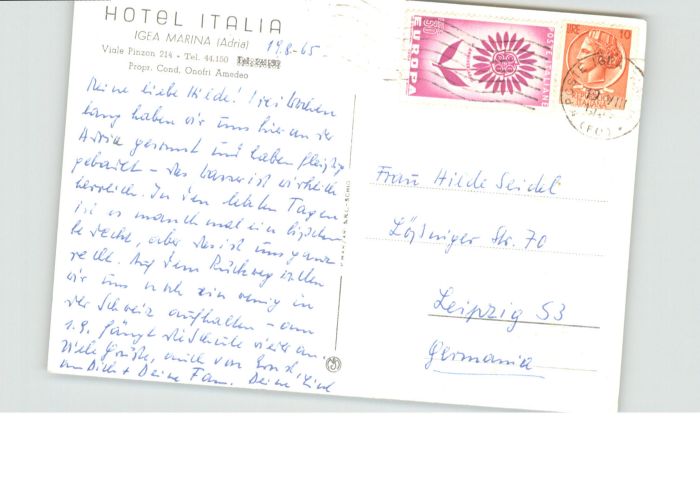 HOTEL ITALIA
IGEA MARINA (Adria)
Viale Pinzon 214 - Tel. 44.150
Propr. Cond. Onofri Amedeo
19.8.65.
Meine liebe Hilde! Drei Wochen
lang haben wir uns hier an der
Adria gesonnt und haben fleißig
gebadet - das Wasser ist wirklich
herrlich. In den letzten Tagen
ist es manchmal ein bißchen
bedeckt, aber das ist uns ganz
recht. Auf dem Rückweg wollen
wir uns noch ein wenig in
der Schweiz aufhalten - am
1.9. fängt die Schule wieder an.
Viele Grüße, auch von Ernst,
an Dich + Deine Fam. Deine
POSTE ITALIANE
EUROPA
10
Frau Hilde Seidel
Lößniger Str. 70
Leipzig S3
Germania